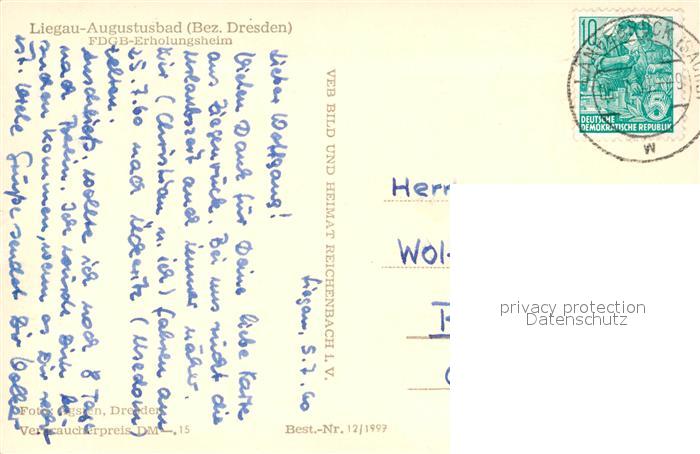 Liegau-Augustusbad (Bez. Dresden)
FDGB-Erholungsheim
Liegau, 5.7.60
Lieber Wolfgang!
Vielen Dank für Deine liebe Karte
aus Ziegenrück. Bei uns rückt die
Urlaubszeit auch immer näher.
Wir (Christian u. ich) fahren am
25.7.60 nach Ückeritz (Usedom)
zelten.
Anschließ. wollte ich noch 8 Tage
nach Berlin. Ich würde Dich be-
suchen kommen, wenn es Dir recht
ist. Viele Grüße sendet Dir Volker
VEB BILD UND HEIMAT REICHENBACH i. V.
Foto: Dresden
Verbraucherpreis DM —,15
Best.-Nr. 12/1997
10
DEUTSCHE
DEMOKRATISCHE REPUBLIK
Herr
Wol-
privacy protection
Datenschutz